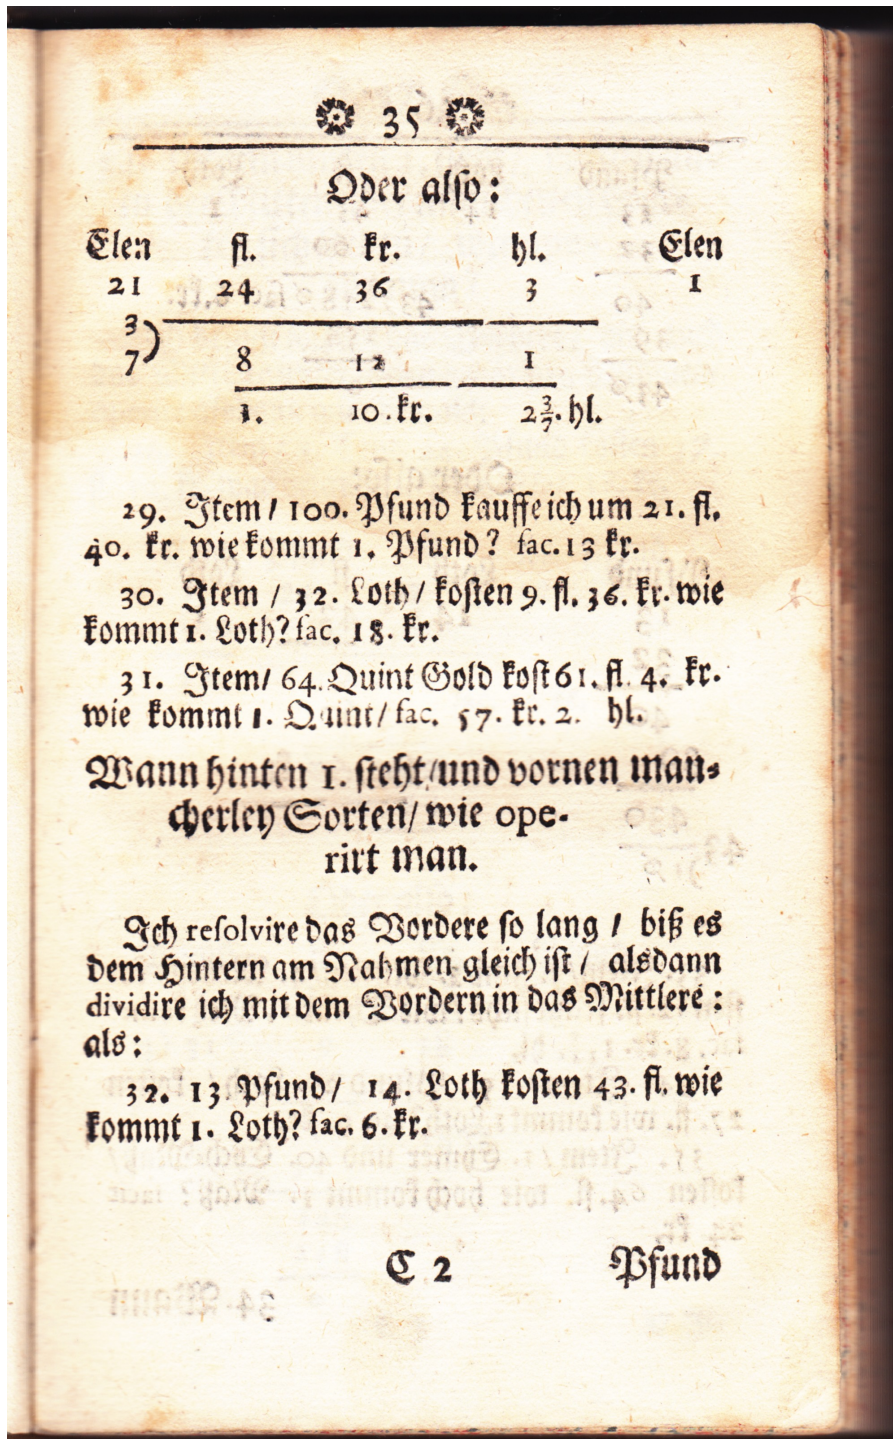 35
Oder also:
Elen fl. kr. hl. Elen
21 24 36 3 1
3
7) 8 12 1
1. 10.kr. 2 3/7. hl.
29. Item / 100. Pfund kauffe ich um 21. fl.
40. kr. wie kommt 1. Pfund? fac. 13 kr.
30. Item / 32. Loth / kosten 9. fl. 36. kr. wie
kommt 1. Loth? fac. 18. kr.
31. Item / 64. Quint Gold kost 61. fl 4. kr.
wie kommt 1. Quint / fac. 57. kr. 2. hl.
Wann hinten 1. steht / und vornen man-
cherley Sorten / wie ope-
rirt man.
Ich resolvire das Vordere so lang / biß es
dem Hintern am Nahmen gleich ist / alsdann
dividire ich mit dem Vordern in das Mittlere:
als:
32. 13 Pfund / 14. Loth kosten 43. fl. wie
kommt 1. Loth? fac. 6. kr.
C 2 Pfund